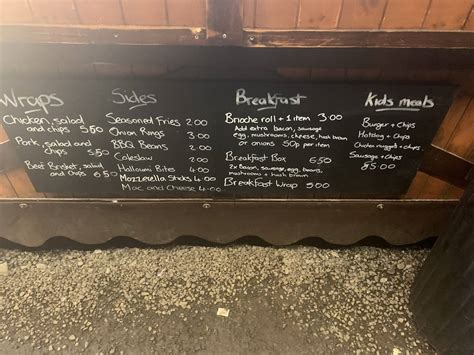 Wraps
Chicken, salad
and chips 5.50
Pork, salad and
chips 5.50
Beef Brisket, salad
and chips 5.50
Sides
Seasoned Fries 2.00
Onion Rings 3.00
BBQ Beans 2.00
Coleslaw 2.00
Halloumi Bites 4.00
Mozzerella Sticks 4.00
Mac and Cheese 4.00
Breakfast
Brioche roll + 1 item 3.00
Add extra bacon, sausage
egg, mushrooms, cheese, hash brown
or onions 50p per item
Breakfast Box 6.50
2x Bacon, sausage, egg, beans,
mushrooms + hash brown
Breakfast Wrap 5.00
Kids meals
Burger + Chips
Hotdog + Chips
Chicken nuggets + Chips
Sausage + Chips
£5.00